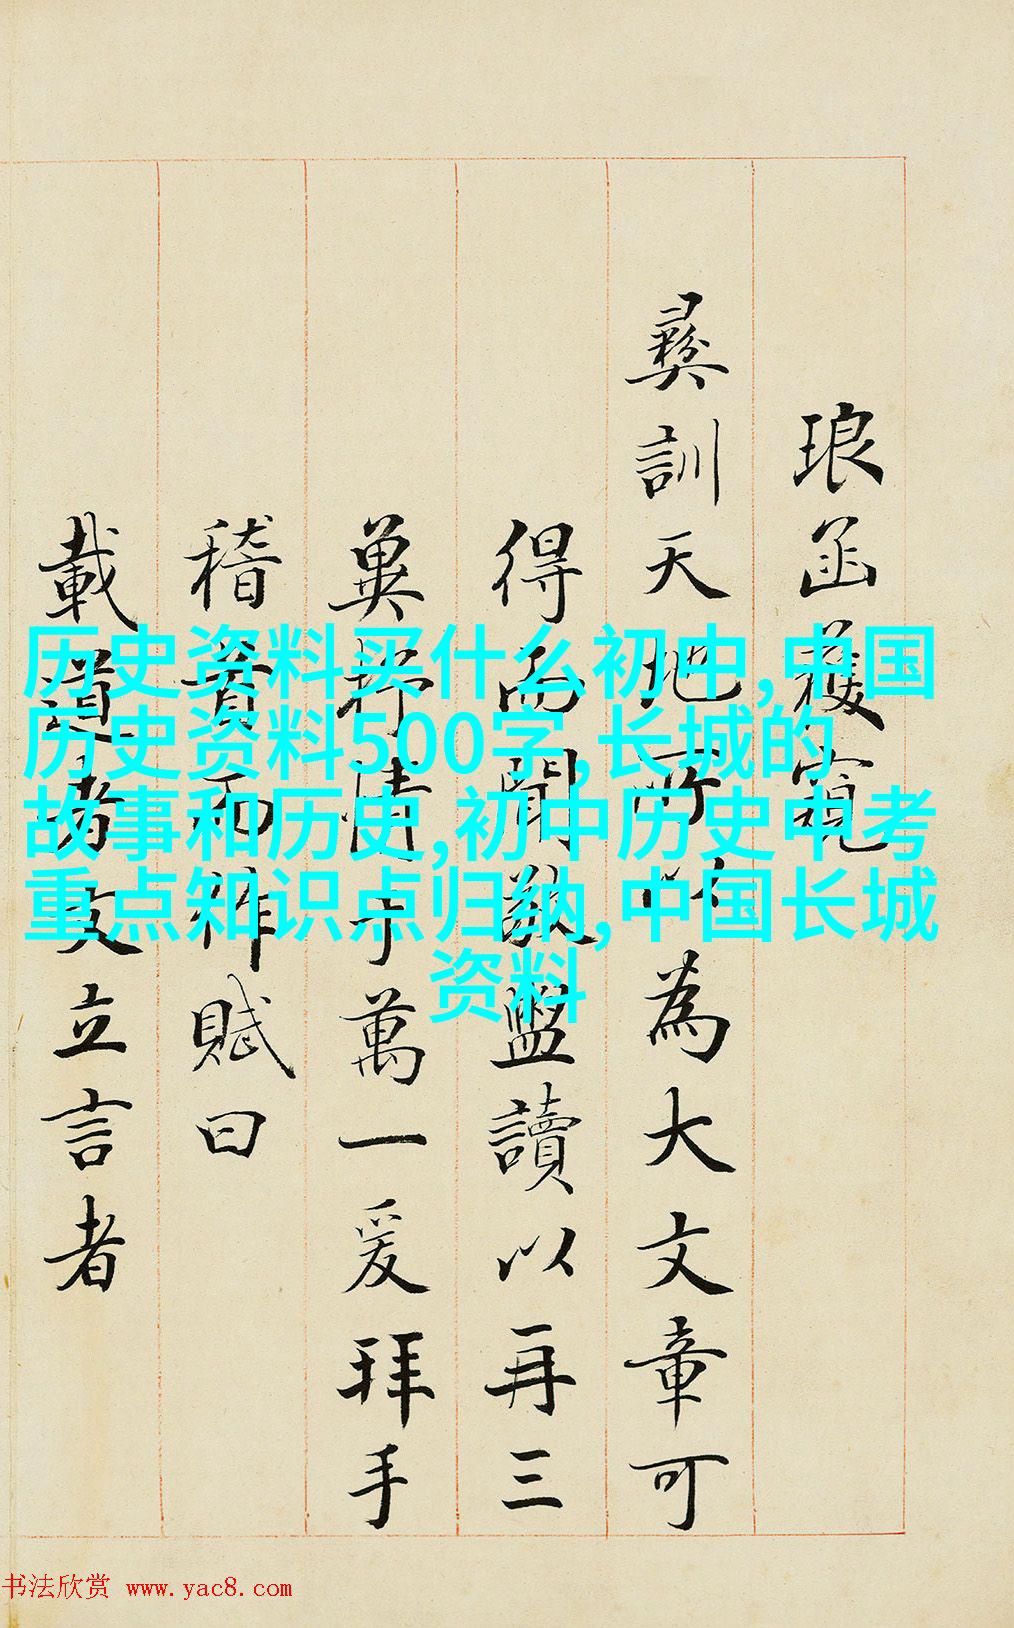 琅函獲窺
彝訓天地所以為大文章可
得而聞敬盥讀以再三
冀揚情于萬一爰拜手
稽首而作賦曰
載道者文立言者
历史资料买什么初中,中国
历史资料500字,长城的
故事和历史,初中历史中考
重点知识点归纳,中国长城
资料
书法欣赏 www.yac8.com